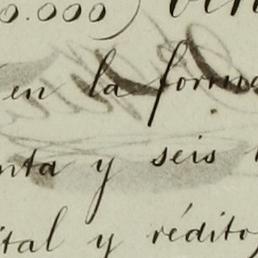 0.000)
en la forma
nta y seis
ital y rédito